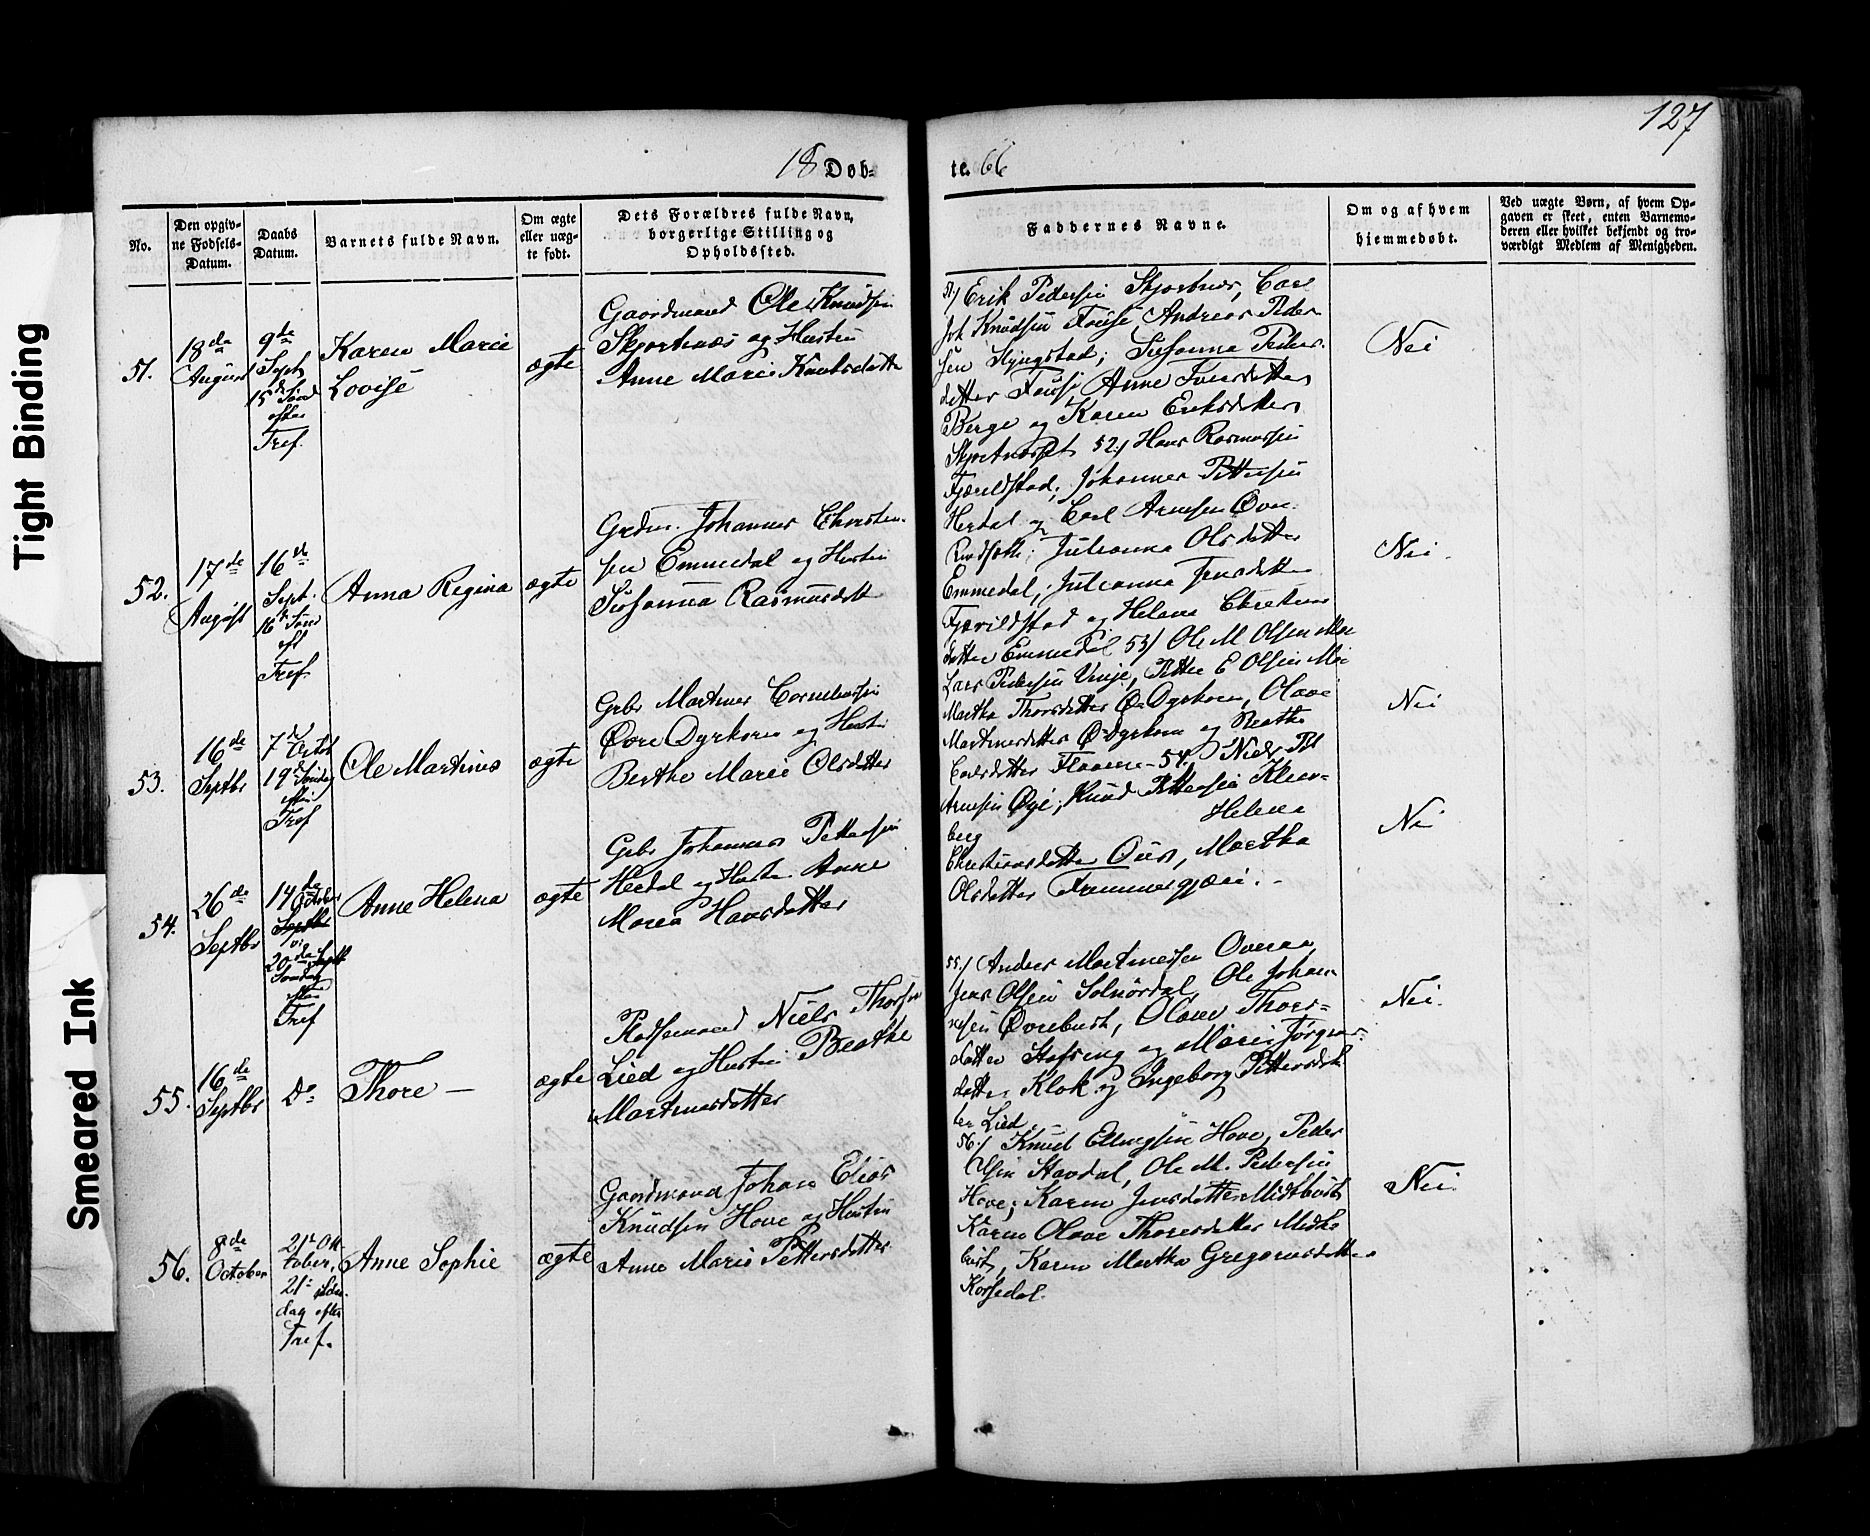 127
18 Døb-
te. 66
No.
Den opgiv-
ne Fødsels-
Datum.
Daabs
Datum.
Barnets fulde Navn.
Om ægte
eller uæg-
te født.
Dets Forældres fulde Navn,
borgerlige Stilling og
Opholdssted.
Faddernes Navne.
Om og af hvem
hjemmedøbt.
Ved uægte Børn, af hvem Op-
gaven er skeet, enten Barnemo-
deren eller hvilket bekjendt og tro-
værdigt Medlem af Menigheden.
51.
18de
August
9de
Sept
15de Sønd
efter
Tref.
Karen Marie
Lovise
ægte
Gaardmand Ole Knudsen
Skjortnæs og Hustru
Anne Marie Knudsdatter
51/ Erik Pedersen Skjortnes, Carl
Joh Knudsen Fause, Andreas Peder
sen Hjugstad; Susanna Peders
datter Fause Anne Iversdatter
Berge og Karen Eriksdatter
Nei
52.
17de
August
16de
Sept.
16de Sønd
eft
Tref
Anna Regina
ægte
Grdm. Johannes Christen
sen Emmedal og Hustru
Susanna Rasmusdatt
52/ Hans Rasmussen
Fjærildstad; Johannes Pettersen
Herdal og Carl Arnesen Øvre
Julianna Olsdatter
Emmedal; Julianna Jensdatter
Fjærildstad og Helena Christens
datter Emmedal
Nei.
53.
16de
Septbr
7de Octob
19de Søndag
efter
Tref
Ole Martinus
ægte
Grbr Martinus Corneliussen
Øvre Dyrkorn og Hustru
Berthe Marie Olsdatter
53/ Ole M Olsen Moe
Lars Pedersen Vinje, Petter E Olsen Moe
Martha Thorsdatter Ø Dyrkorn, Olave
Martinusdatter Ø Dyrkorn og Beathe
Carlsdatter
Nei
54.
26de
Septbr
14de
October
Septbr
20de
Søndag
efter
Tref
Anne Helena
ægte
Grbr Johannes Pettersen
Herdal og Hustru Anne
Maria Hansdatter
54/ Niels Pet
Arnesen Øye, Knud Pettersen Klem-
berg Helena
Christiansdatter Ouse, Martha
Olsdatter
Nei
55.
16de
Septbr
Do
Thore –
ægte
Pladsemand Niels Thorsen
Lied og Hustru Beathe
Martinusdatter
55/ Anders Martinussen Overaa
Jens Olsen Solnørdal, Ole Johan
nesen Øvrebust, Olave Thors-
datter Hofseng og Marie Jørgens-
datter Klok og Ingeborg Pettersdat
ter Lied
Nei.
56.
8de
October
21de Ok-
tober,
21de Søn-
dag efter
Tref.
Anne Sophie
ægte
Gaardmand Johan Elias
Knudsen Hove og Hustru
Anne Marie Pettersdatter
56/ Knud Ellingsen Hove, Peder
Olsen Stavdal, Ole M. Pedersen
Hove; Karen Jensdatter Midtbust
Karen Olave Thoresdatter Midt
bust, Karen Martha Gregoriusdatter
Korsedal.
Nei.
Tight Binding
Smeared Ink